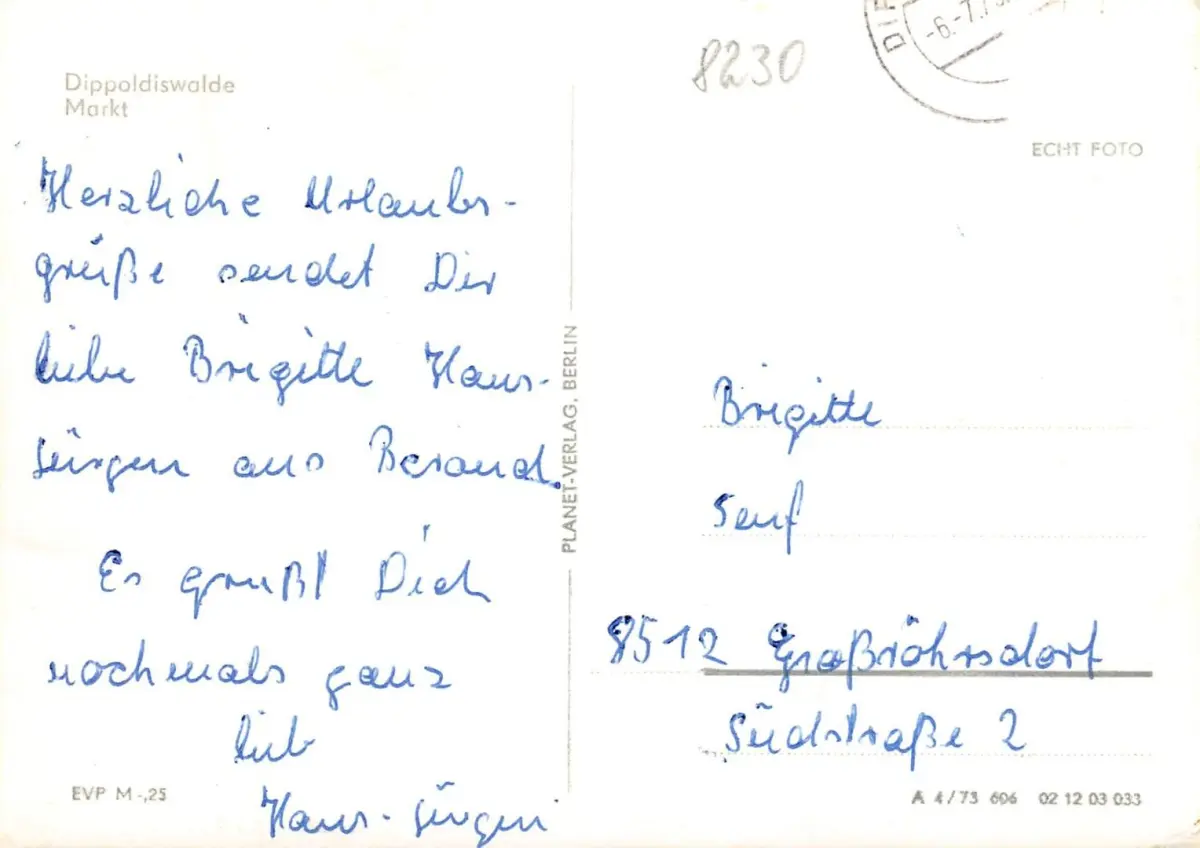 Dippoldiswalde
Markt
Herzliche Urlaubs-
grüße sendet Dir
liebe Brigitte Hans-
Jürgen aus Berand.
Es grüßt Dich
nochmals ganz
lieb
Hans-Jürgen
EVP M -,25
PLANET-VERLAG, BERLIN
8230
DIP
-6.-7.7
ECHT FOTO
Brigitte
Senf
8512 Großröhrsdorf
Südstraße 2
A 4/73 606 02 12 03 033